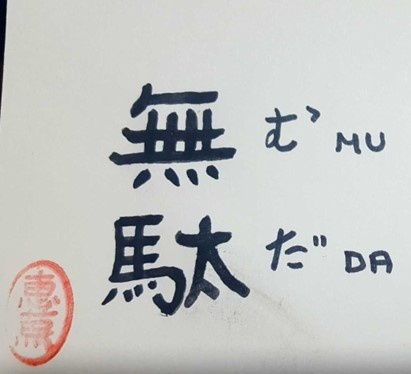 無 む MU
駄 だ DA